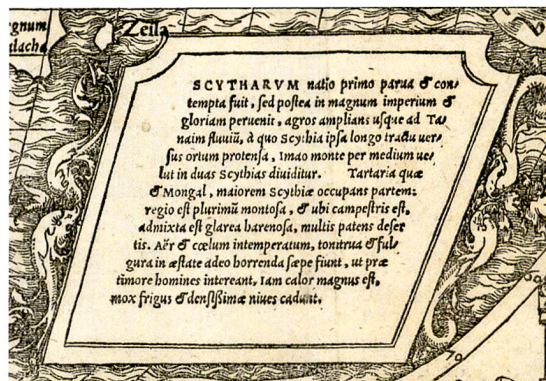 gnum
lacha
Zeila
SCYTHARVM natio primo parua & con⸗
tempta fuit, ſed poſtea in magnum imperium &
gloriam peruenit, agros amplians uſque ad Ta⸗
naim fluuiũ, à quo Scythia ipſa longo tractu uer⸗
ſus ortum protenſa, Imao monte per medium ue⸗
lut in duas Scythias diuiditur. Tartaria quæ
& Mongal, maiorem Scythiæ occupans partem:
regio eſt plurimũ montoſa, & ubi campeſtris eſt,
admixta eſt glarea harenoſa, multis patens deſer
tis. Aër & cœlum intemperatum, tonitrua & ful⸗
gura in æſtate adeo horrenda ſæpe fiunt, ut præ
timore homines intereant, Iam calor magnus eſt,
mox frigus & denſißimæ niues cadunt.
70